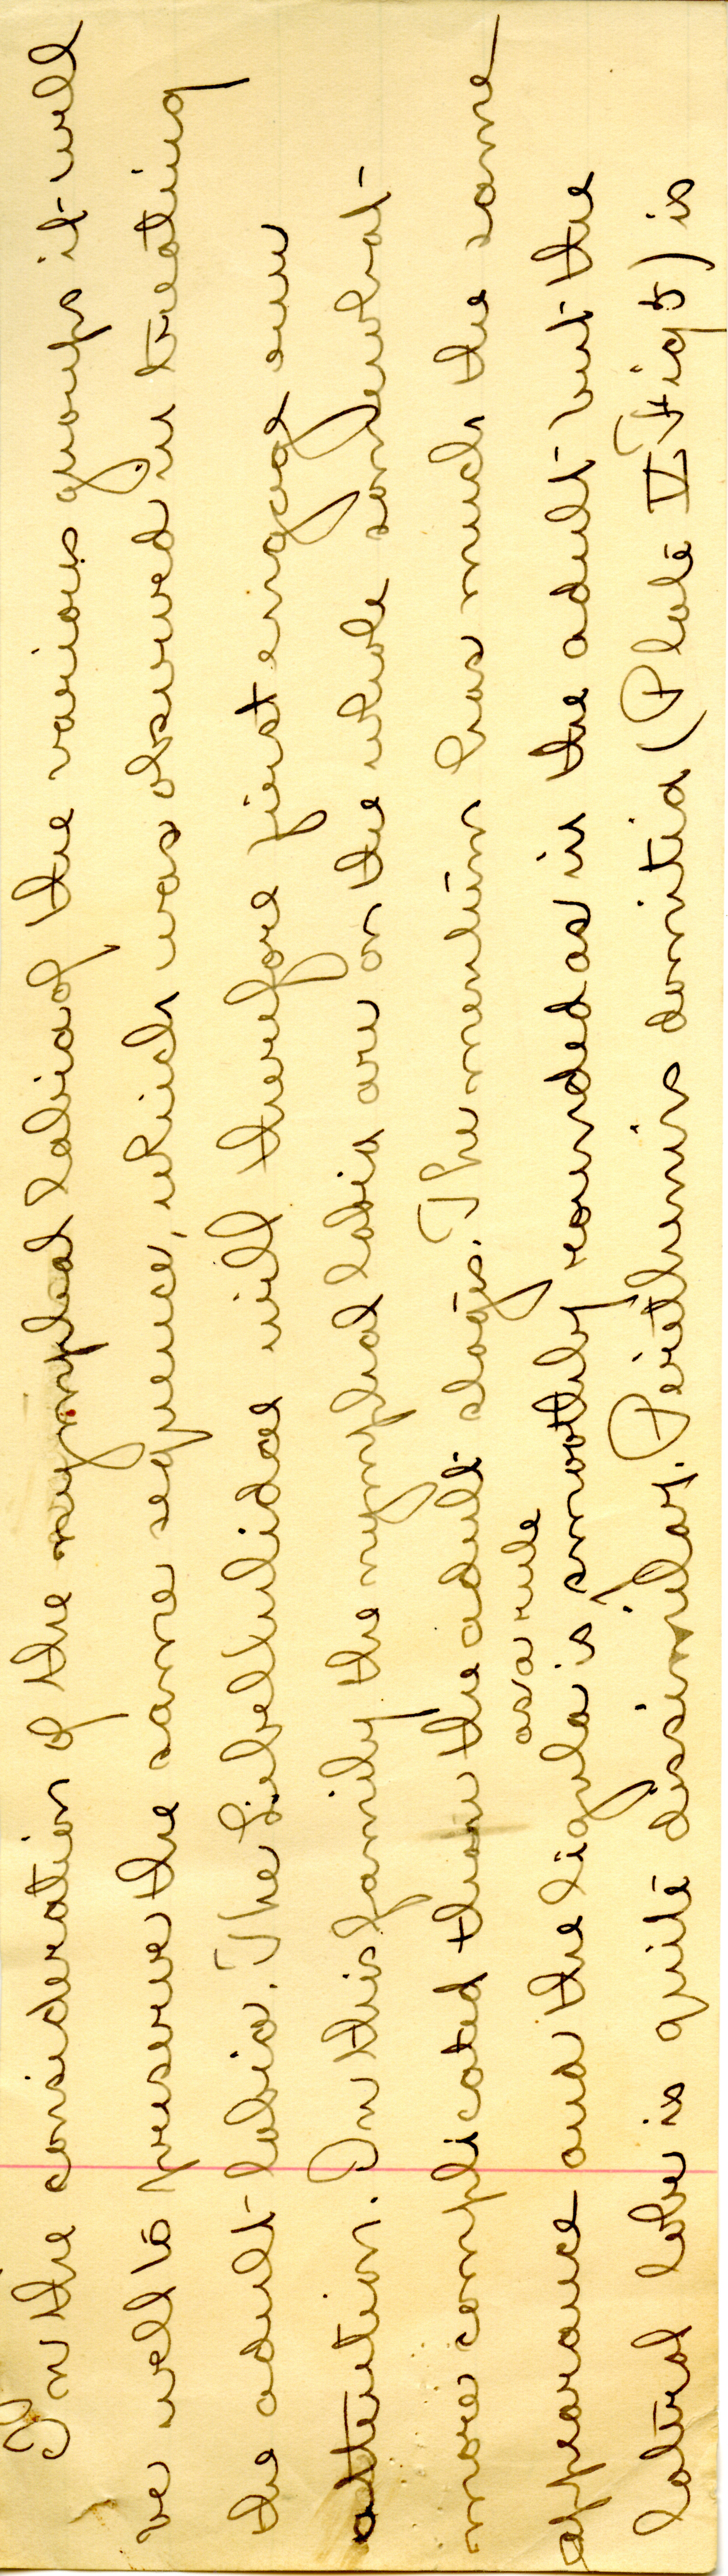 In the consideration of the nymphal labia of the various groups it will
be well to preserve the same sequence, which was observed in treating
the adult labia. The Libellulidae will therefore first engage our
attention. In this family the nymphal labia are on the whole somewhat
more complicated than the adult stages. The mentum has much the same
as a rule
appearance and the ligula is smoothly rounded as in the adult but the
lateral lobe is quite dissimilar. Perithemis domitia (Plate V Fig 5) is